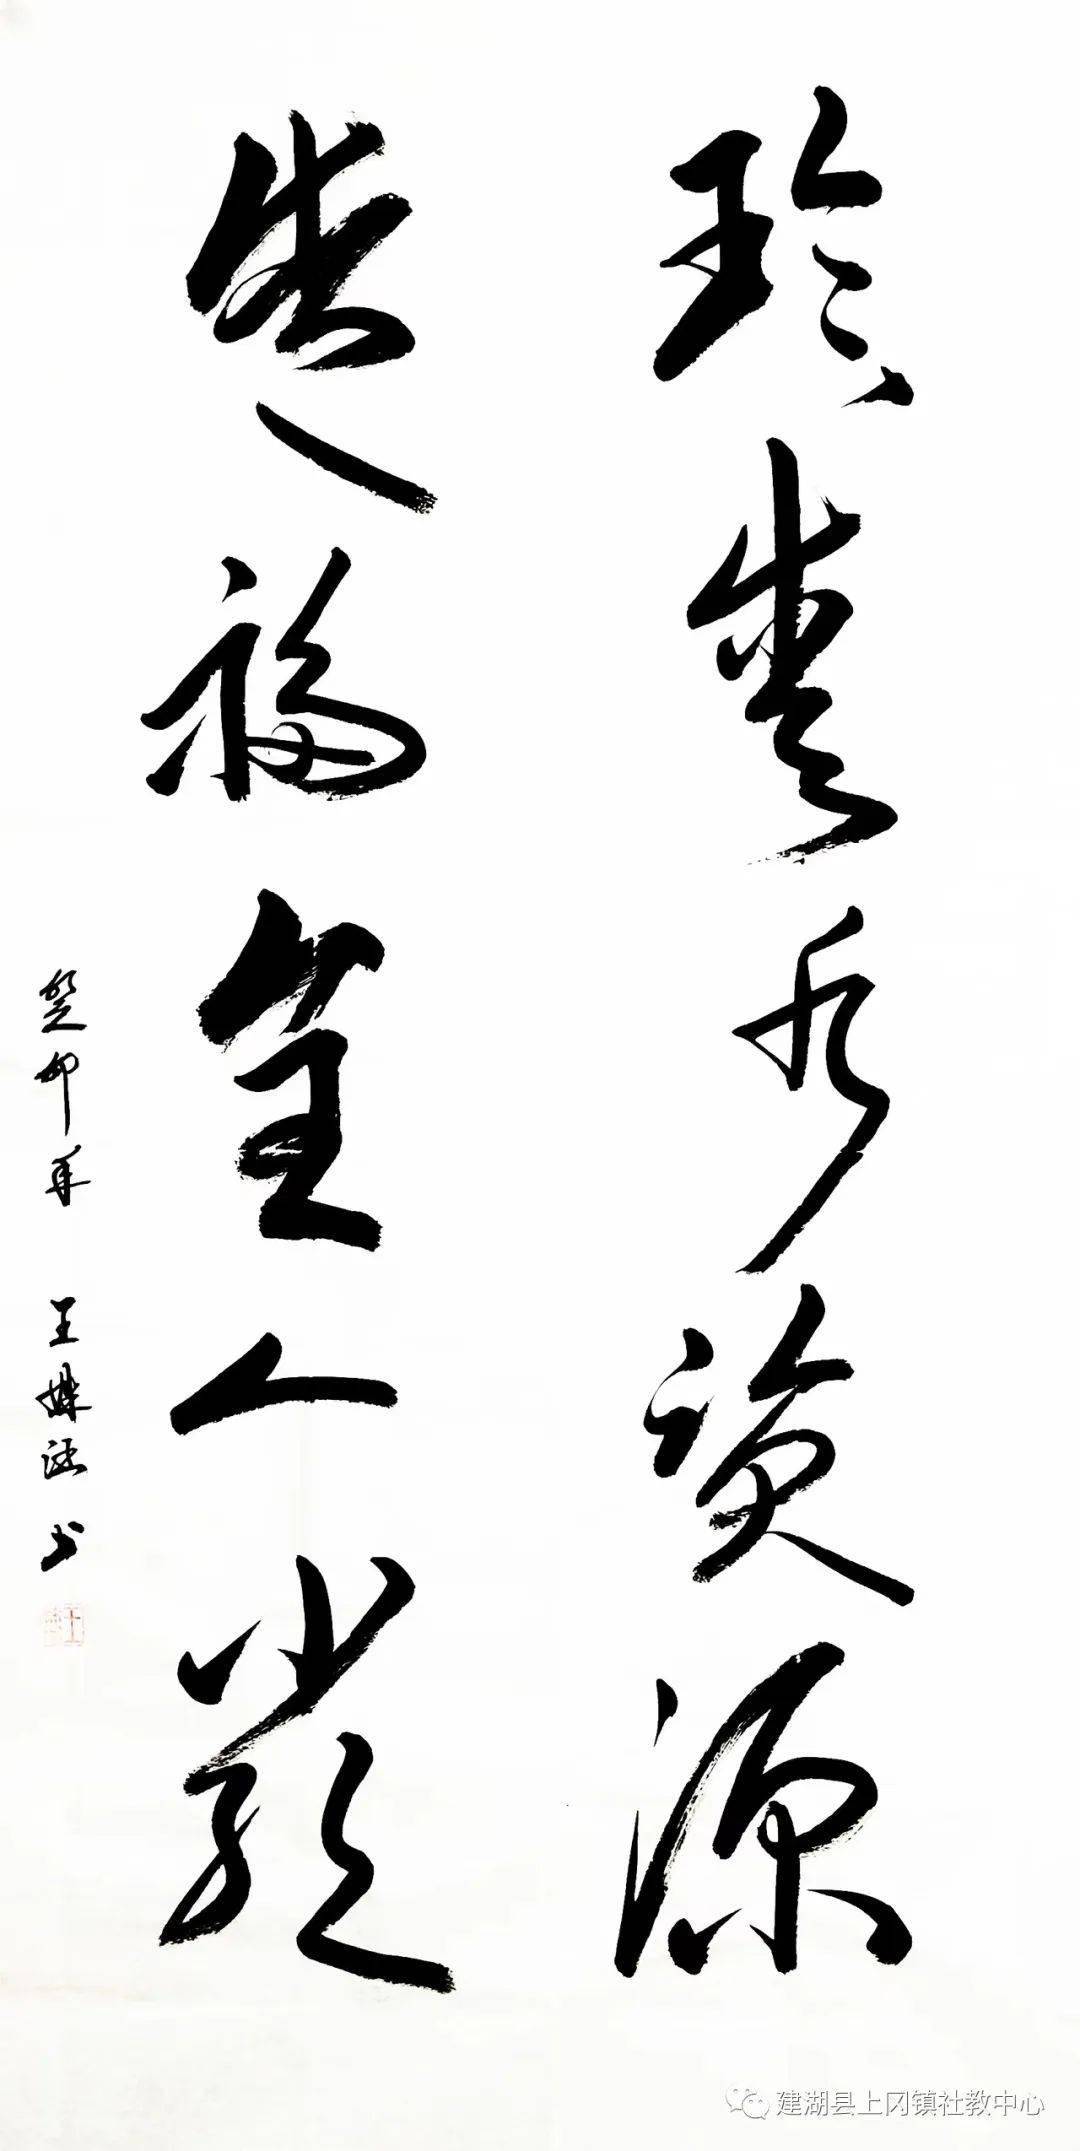 珍爱水资源
造福全人類
癸卯年 王姝涵 书
建湖县上冈镇社教中心